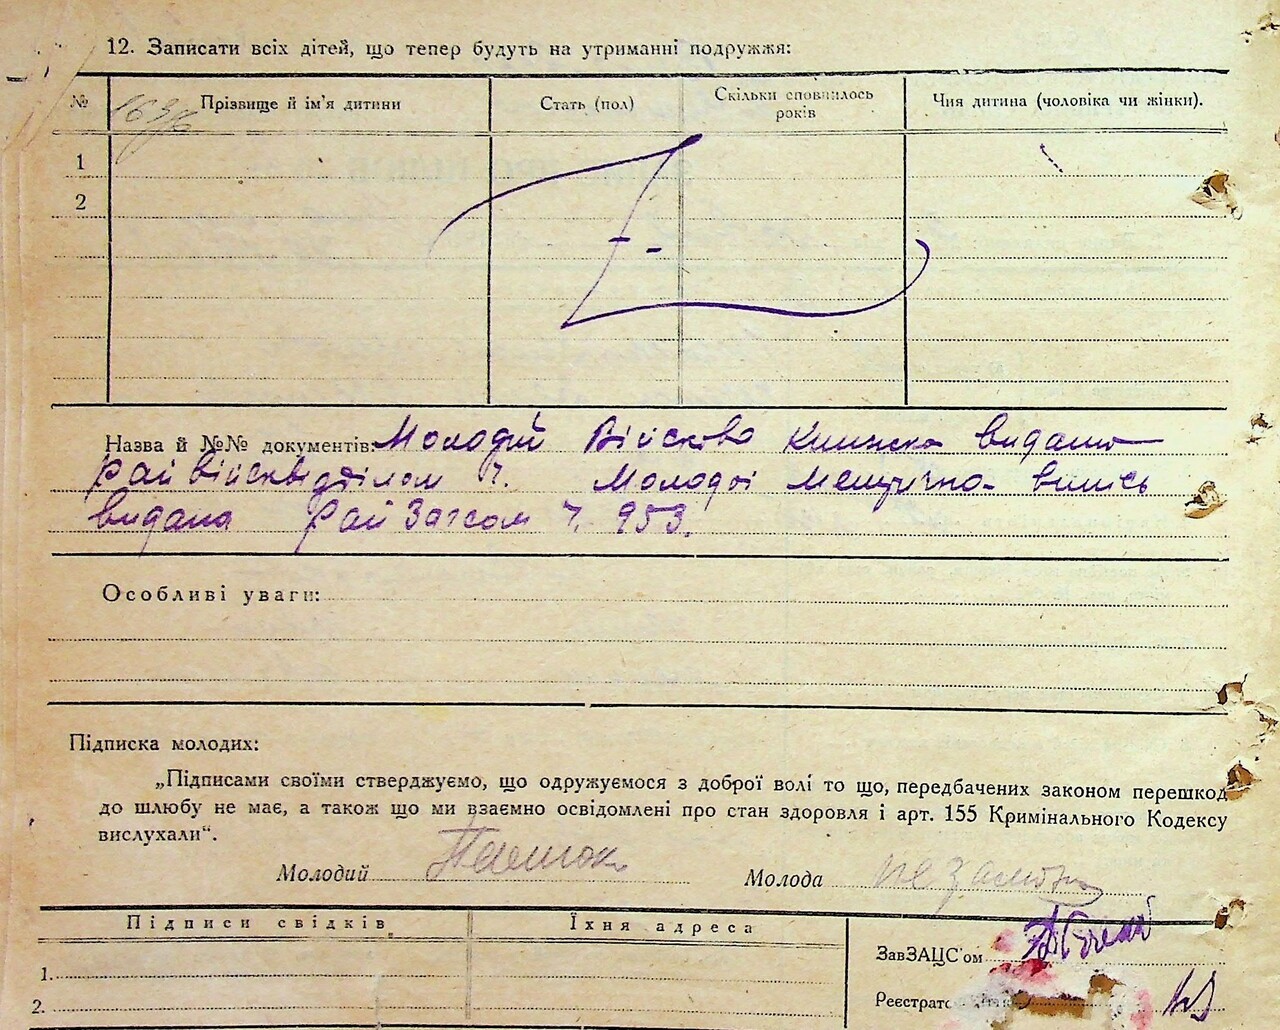 12. Записати всіх дітей, що тепер будуть на утриманні подружжя:
№ Прізвище й ім'я дитини Стать (пол) Скільки сповнилось років Чия дитина (чоловіка чи жінки).
1
2
Назва й №№ документів: Молодий Військова книжка видано
Райвійсквідділом Ч. Молодої Метрична випись
видана РайЗагсом Ч. 953.
Особливі уваги:
Підписка молодих:
„Підписами своїми стверджуємо, що одружуємося з доброї волі то що, передбачених законом перешкод
до шлюбу не має, а також що ми взаємно освідомлені про стан здоровля і арт. 155 Кримінального Кодексу
вислухали“.
Молодий Молода
Підписи свідків Їхня адреса
ЗавЗАЦС'ом
1.
Реєстрато
2.